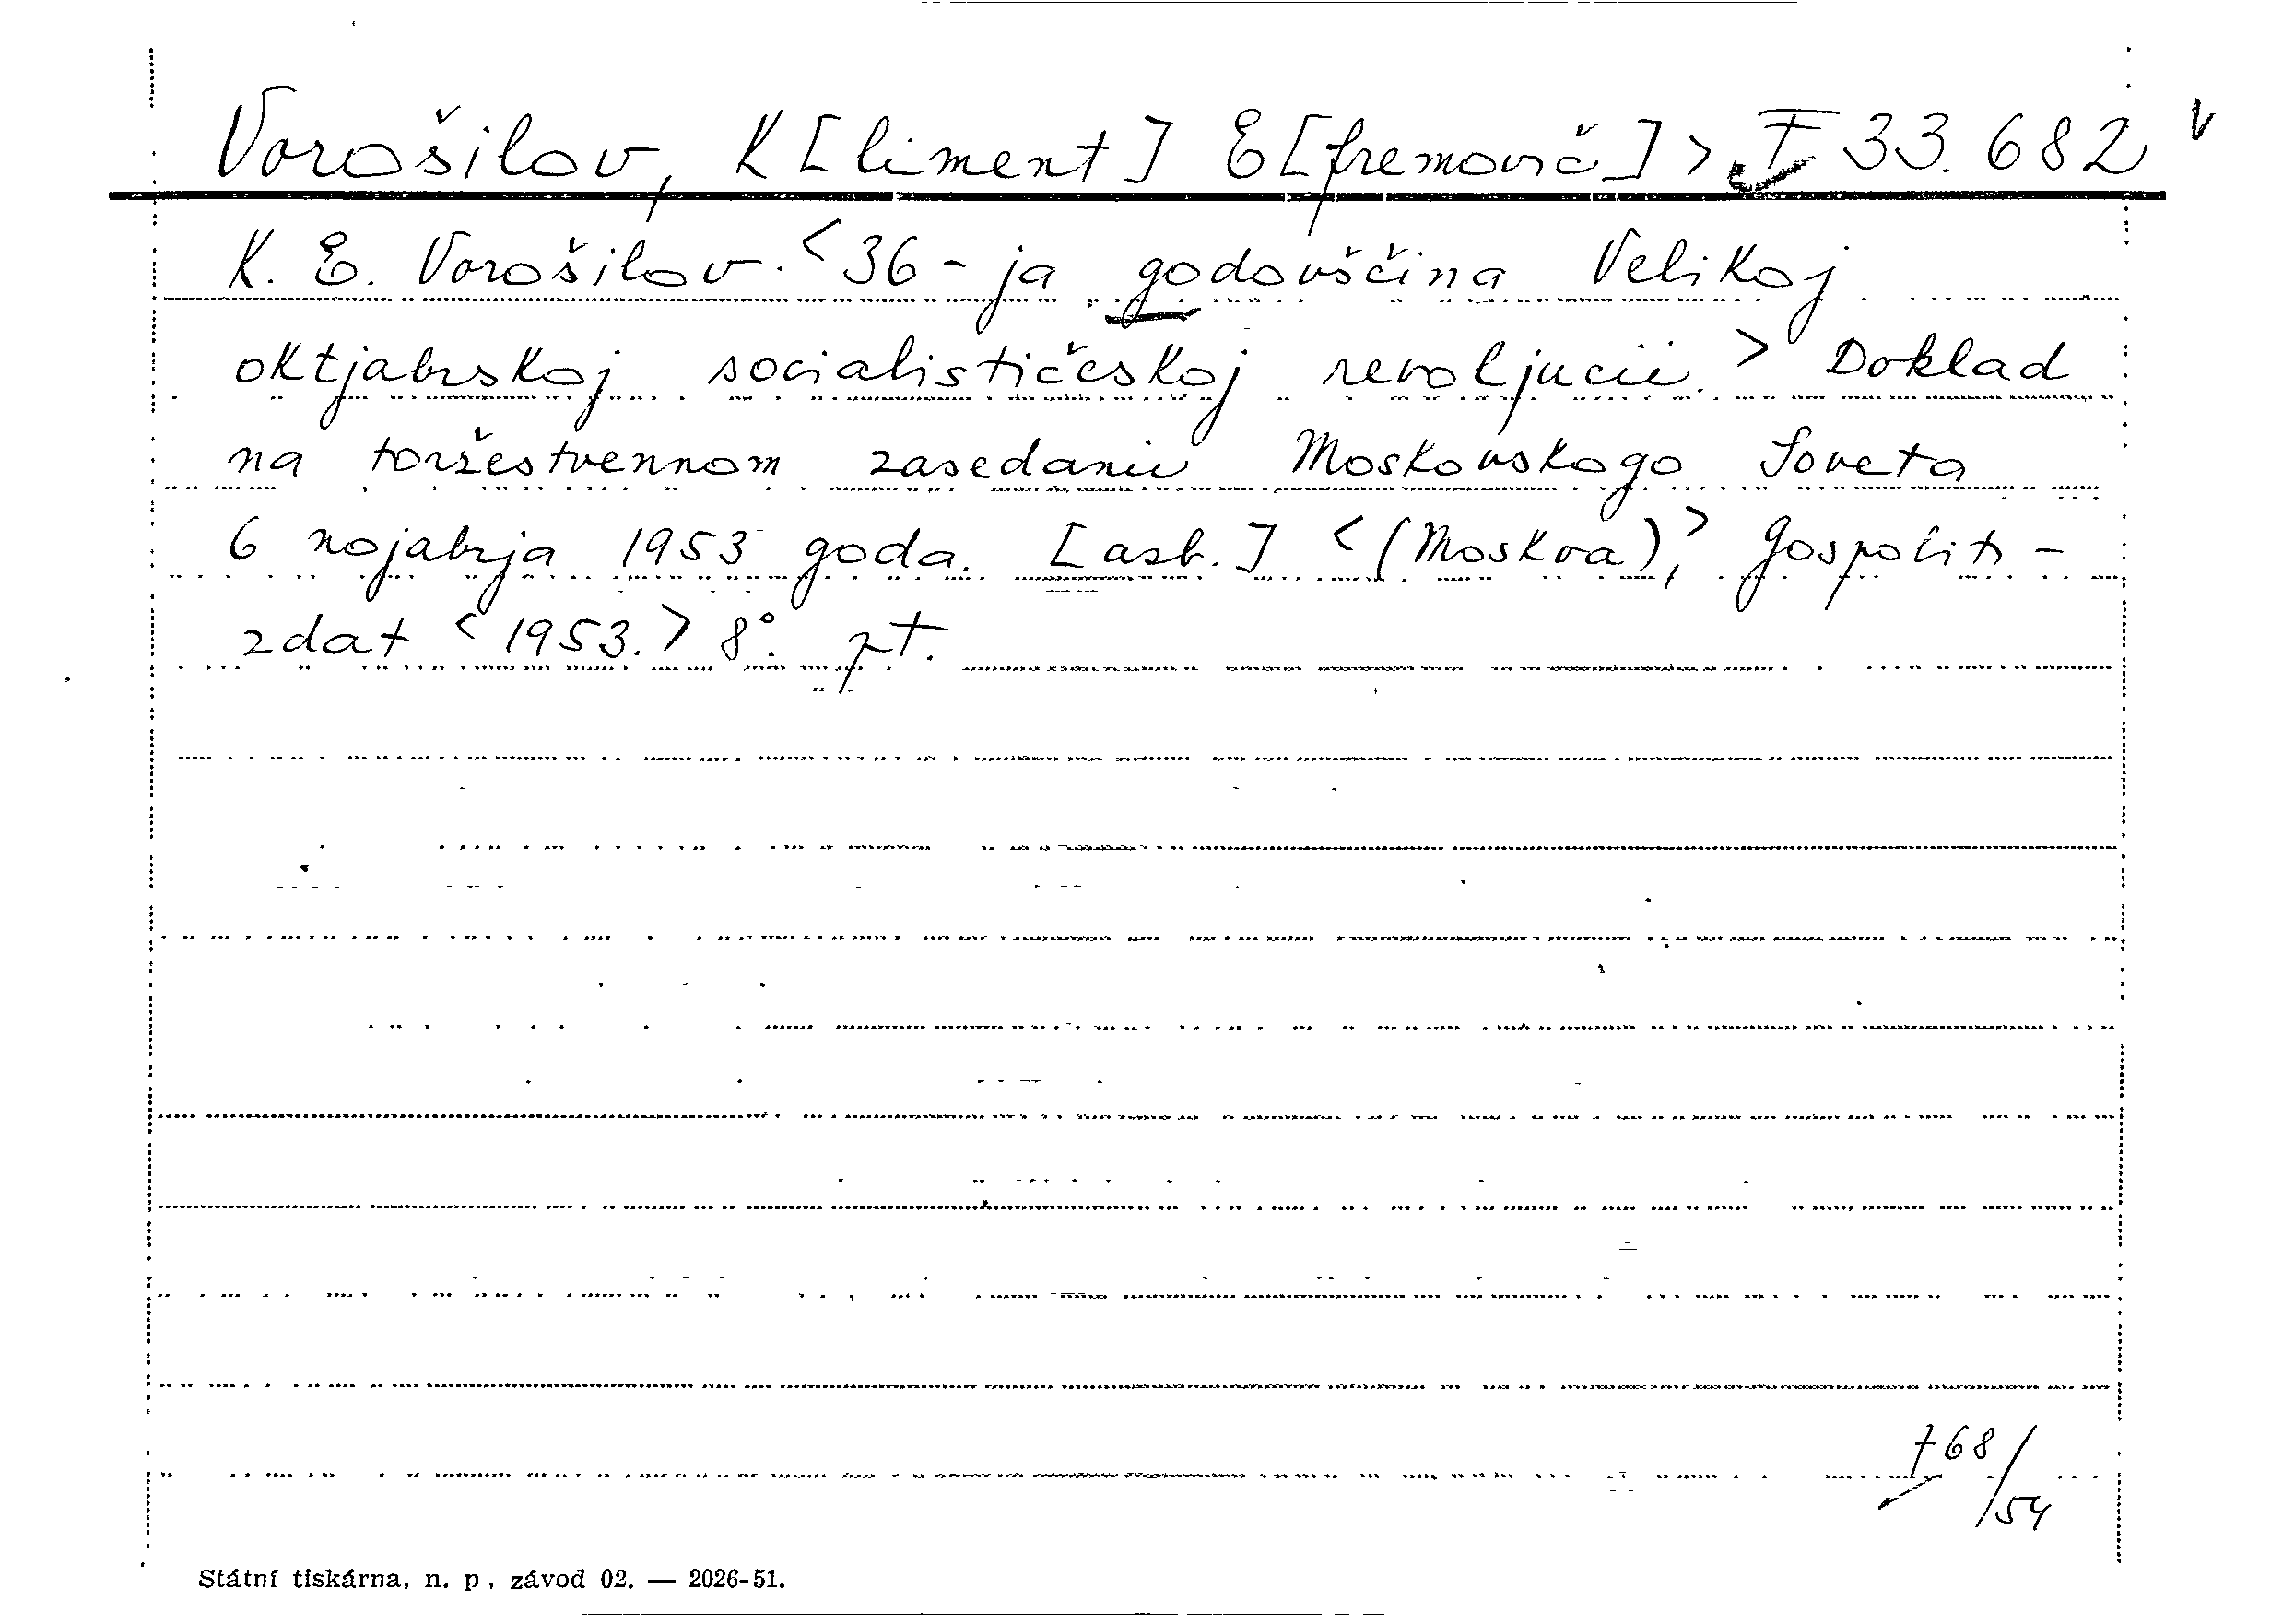 Vorošilov, K[liment] E[fremovič] > F 33.682 v
K. E. Vorošilov. < 36-ja godovščina Velikoj
oktjabrskoj socialističeskoj revoljucii. > Doklad
na toržestvennom zasedanii Moskovskogo Soveta
6 nojabrja 1953 goda. [azb.] < (Moskva), > Gospoliti-
zdat < 1953. > 8°. pt.
768/54
Státní tiskárna, n. p., závod 02. — 2026-51.